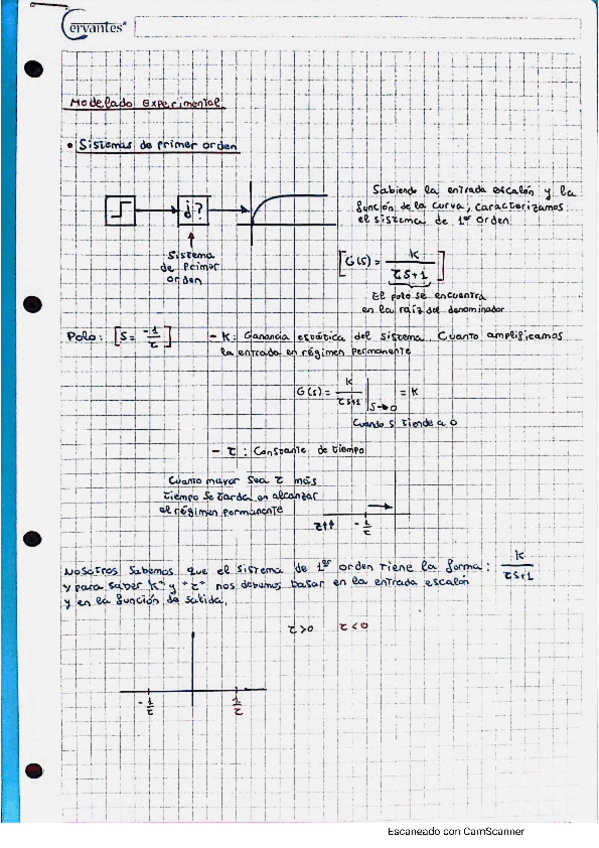 Cervantes
Modelado Experimental
• Sistemas de primer orden
¿?
Sabiendo la entrada escalón y la
función de la curva, caracterizamos
el sistema de 1er orden.
Sistema
de Primer
orden
[G(s) = K / τs+1]
El polo se encuentra
en la raíz del denominador
Polo: [S = -1/τ]
- K: Ganancia estática del sistema. Cuanto amplificamos
la entrada en régimen permanente
G(s) = K / τs+1 | s→0 = K
Cuando s tiende a 0
- τ: Constante de tiempo
Cuanto mayor sea τ más
tiempo se tarda en alcanzar
el régimen permanente
τ↑↑ -1/τ
Nosotros sabemos que el sistema de 1er orden tiene la forma: K / τs+1
y para saber "K" y "τ" nos debemos basar en la entrada escalón
y en la función de salida.
τ>0 τ<0
-1/τ 1/τ
Escaneado con CamScanner